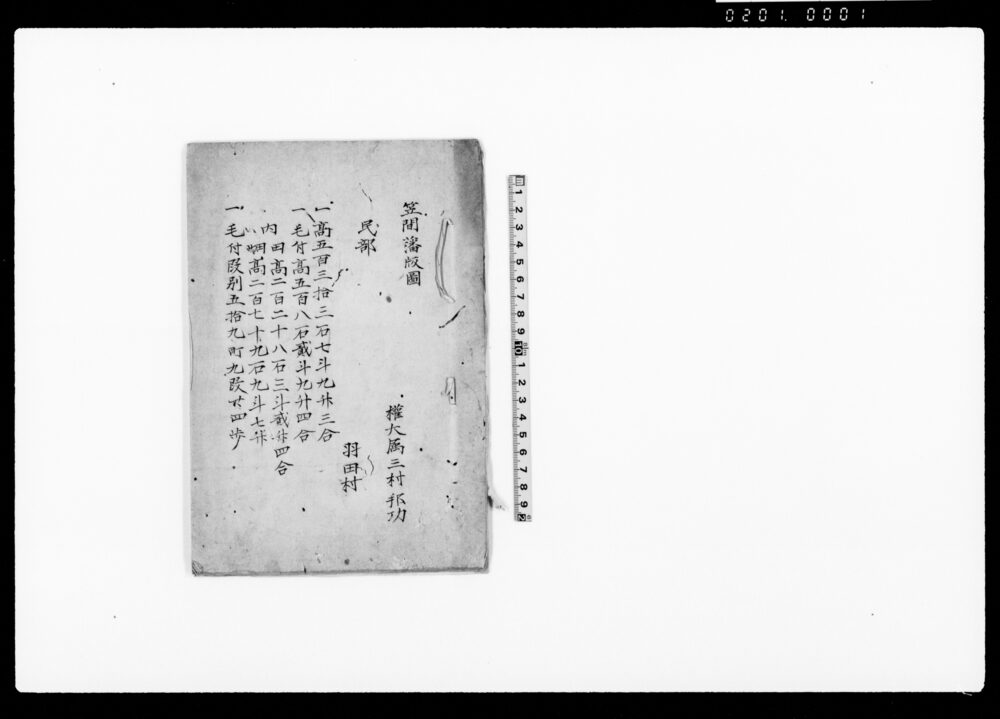 0201.0001
笠間藩版圖
權大属三村邦功
民部
羽田村
一高五百三拾三石七斗九升三合
一毛付高五百八石貮斗九升四合
内田高二百二十八石三斗貮升四合
畑高二百七十九石九斗七升
一毛付段別五拾九町九段廿四歩
1 2 3 4 5 6 7 8 9 10 1 2 3 4 5 6 7 8 9 2